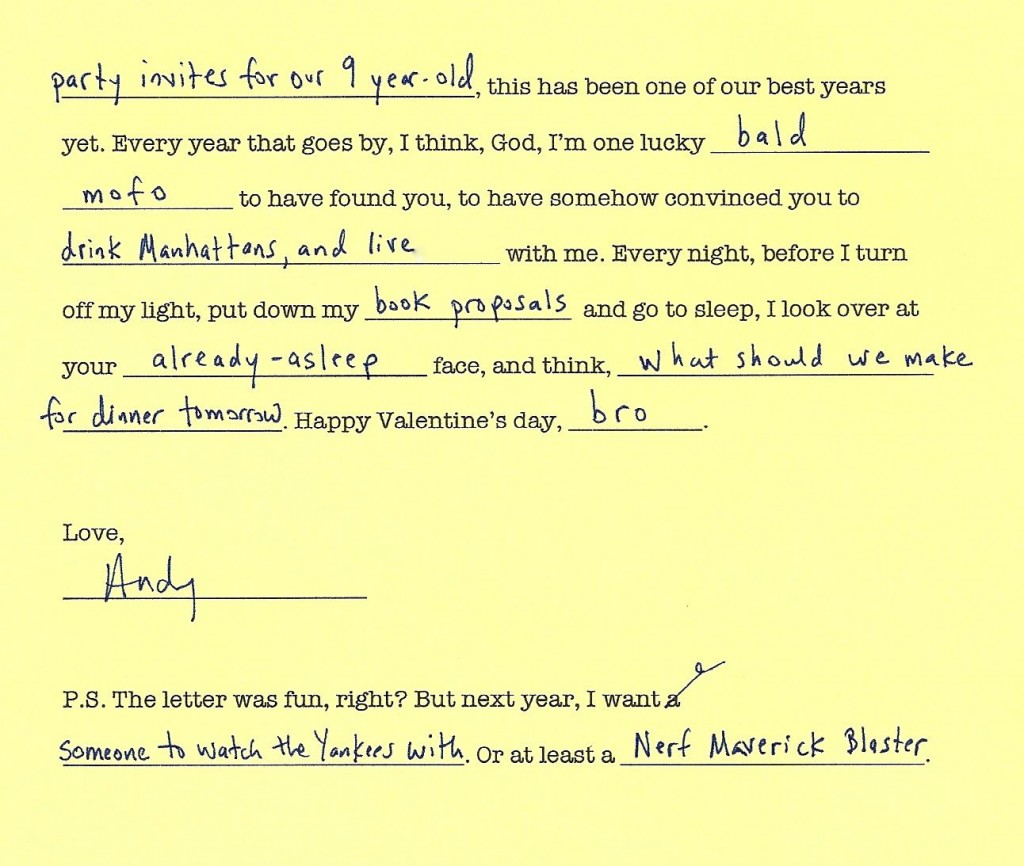 party invites for our 9 year-old, this has been one of our best years
yet. Every year that goes by, I think, God, I'm one lucky bald
mofo to have found you, to have somehow convinced you to
drink Manhattans, and live with me. Every night, before I turn
off my light, put down my book proposals and go to sleep, I look over at
your already-asleep face, and think, what should we make
for dinner tomorrow. Happy Valentine's day, bro.
Love,
Andy
P.S. The letter was fun, right? But next year, I want a
Someone to watch the Yankees with. Or at least a Nerf Maverick Blaster.